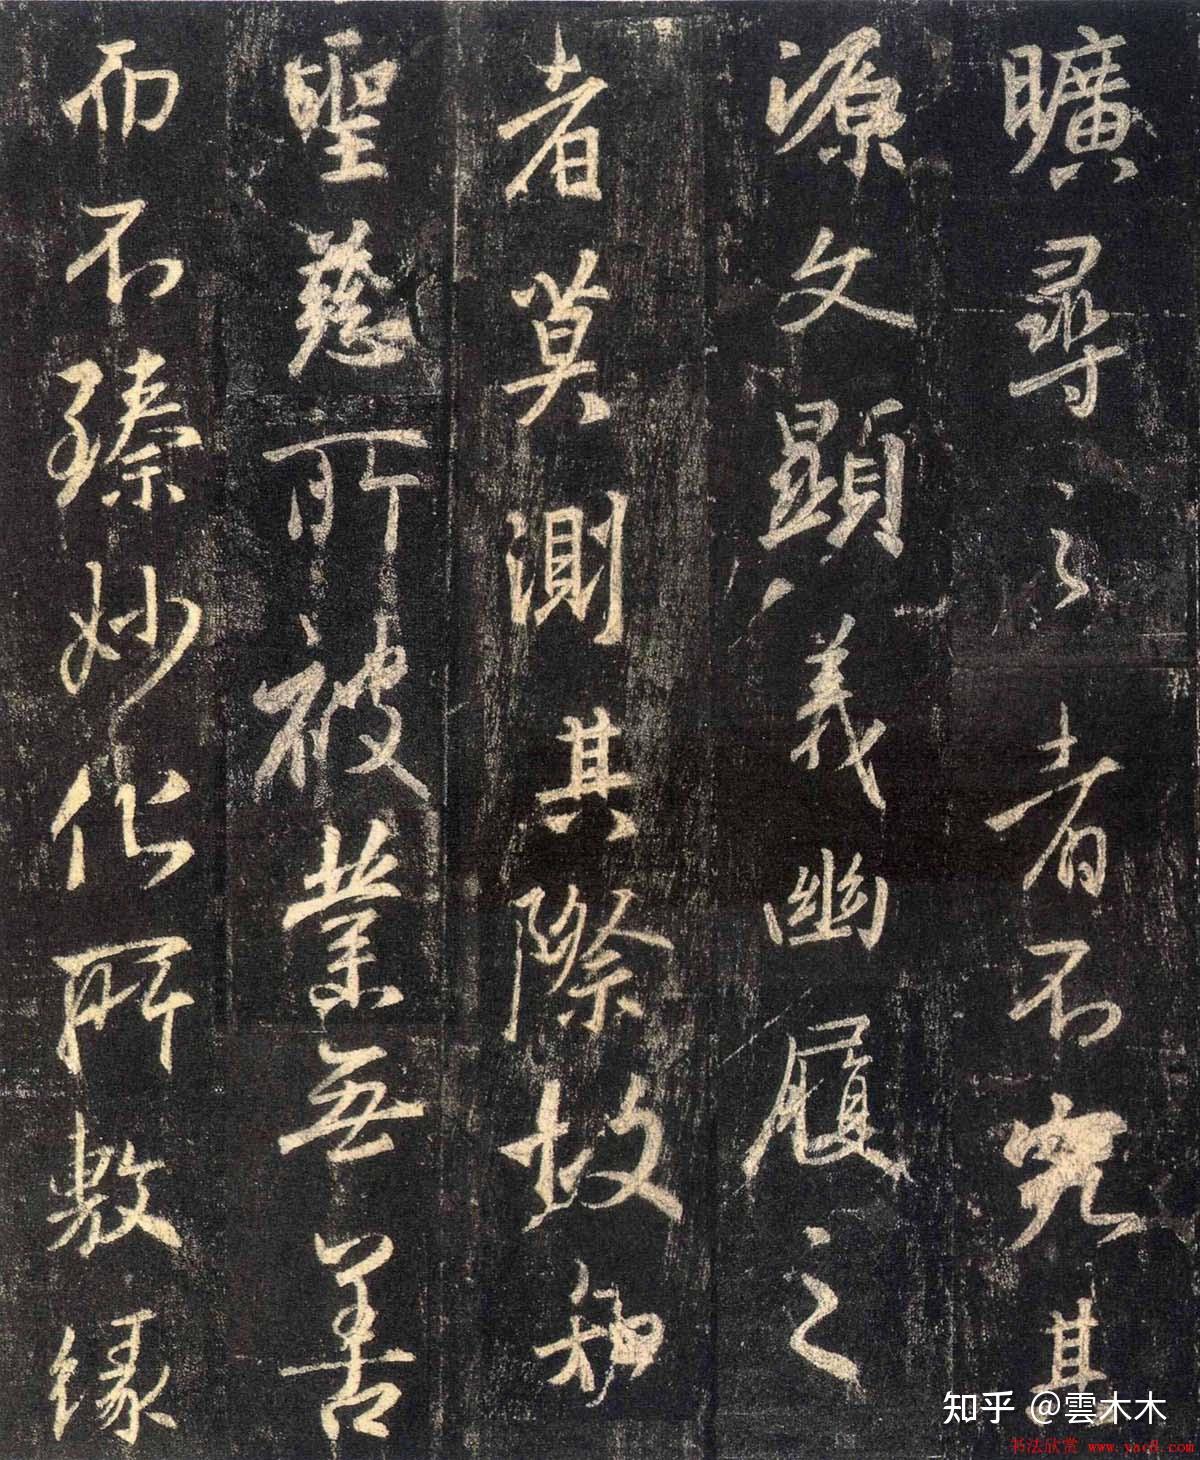 曠尋之者不究其
源文顯義幽履之
者莫測其際故知
聖慈所被業無善
而不臻妙化所敷緣
知乎 @雲木木
书法欣赏 www.yac8.com